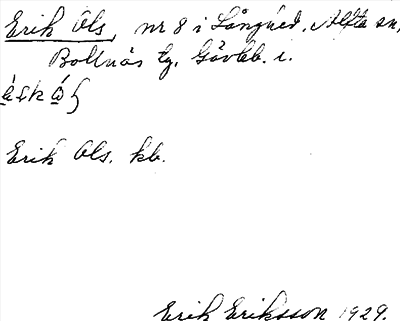 Erik Ols, nr 8 i Långhed, Alfta sn,
Bollnäs tg. Gävleb. l.
Erik Ols. kb.
Erik Eriksson 1929.